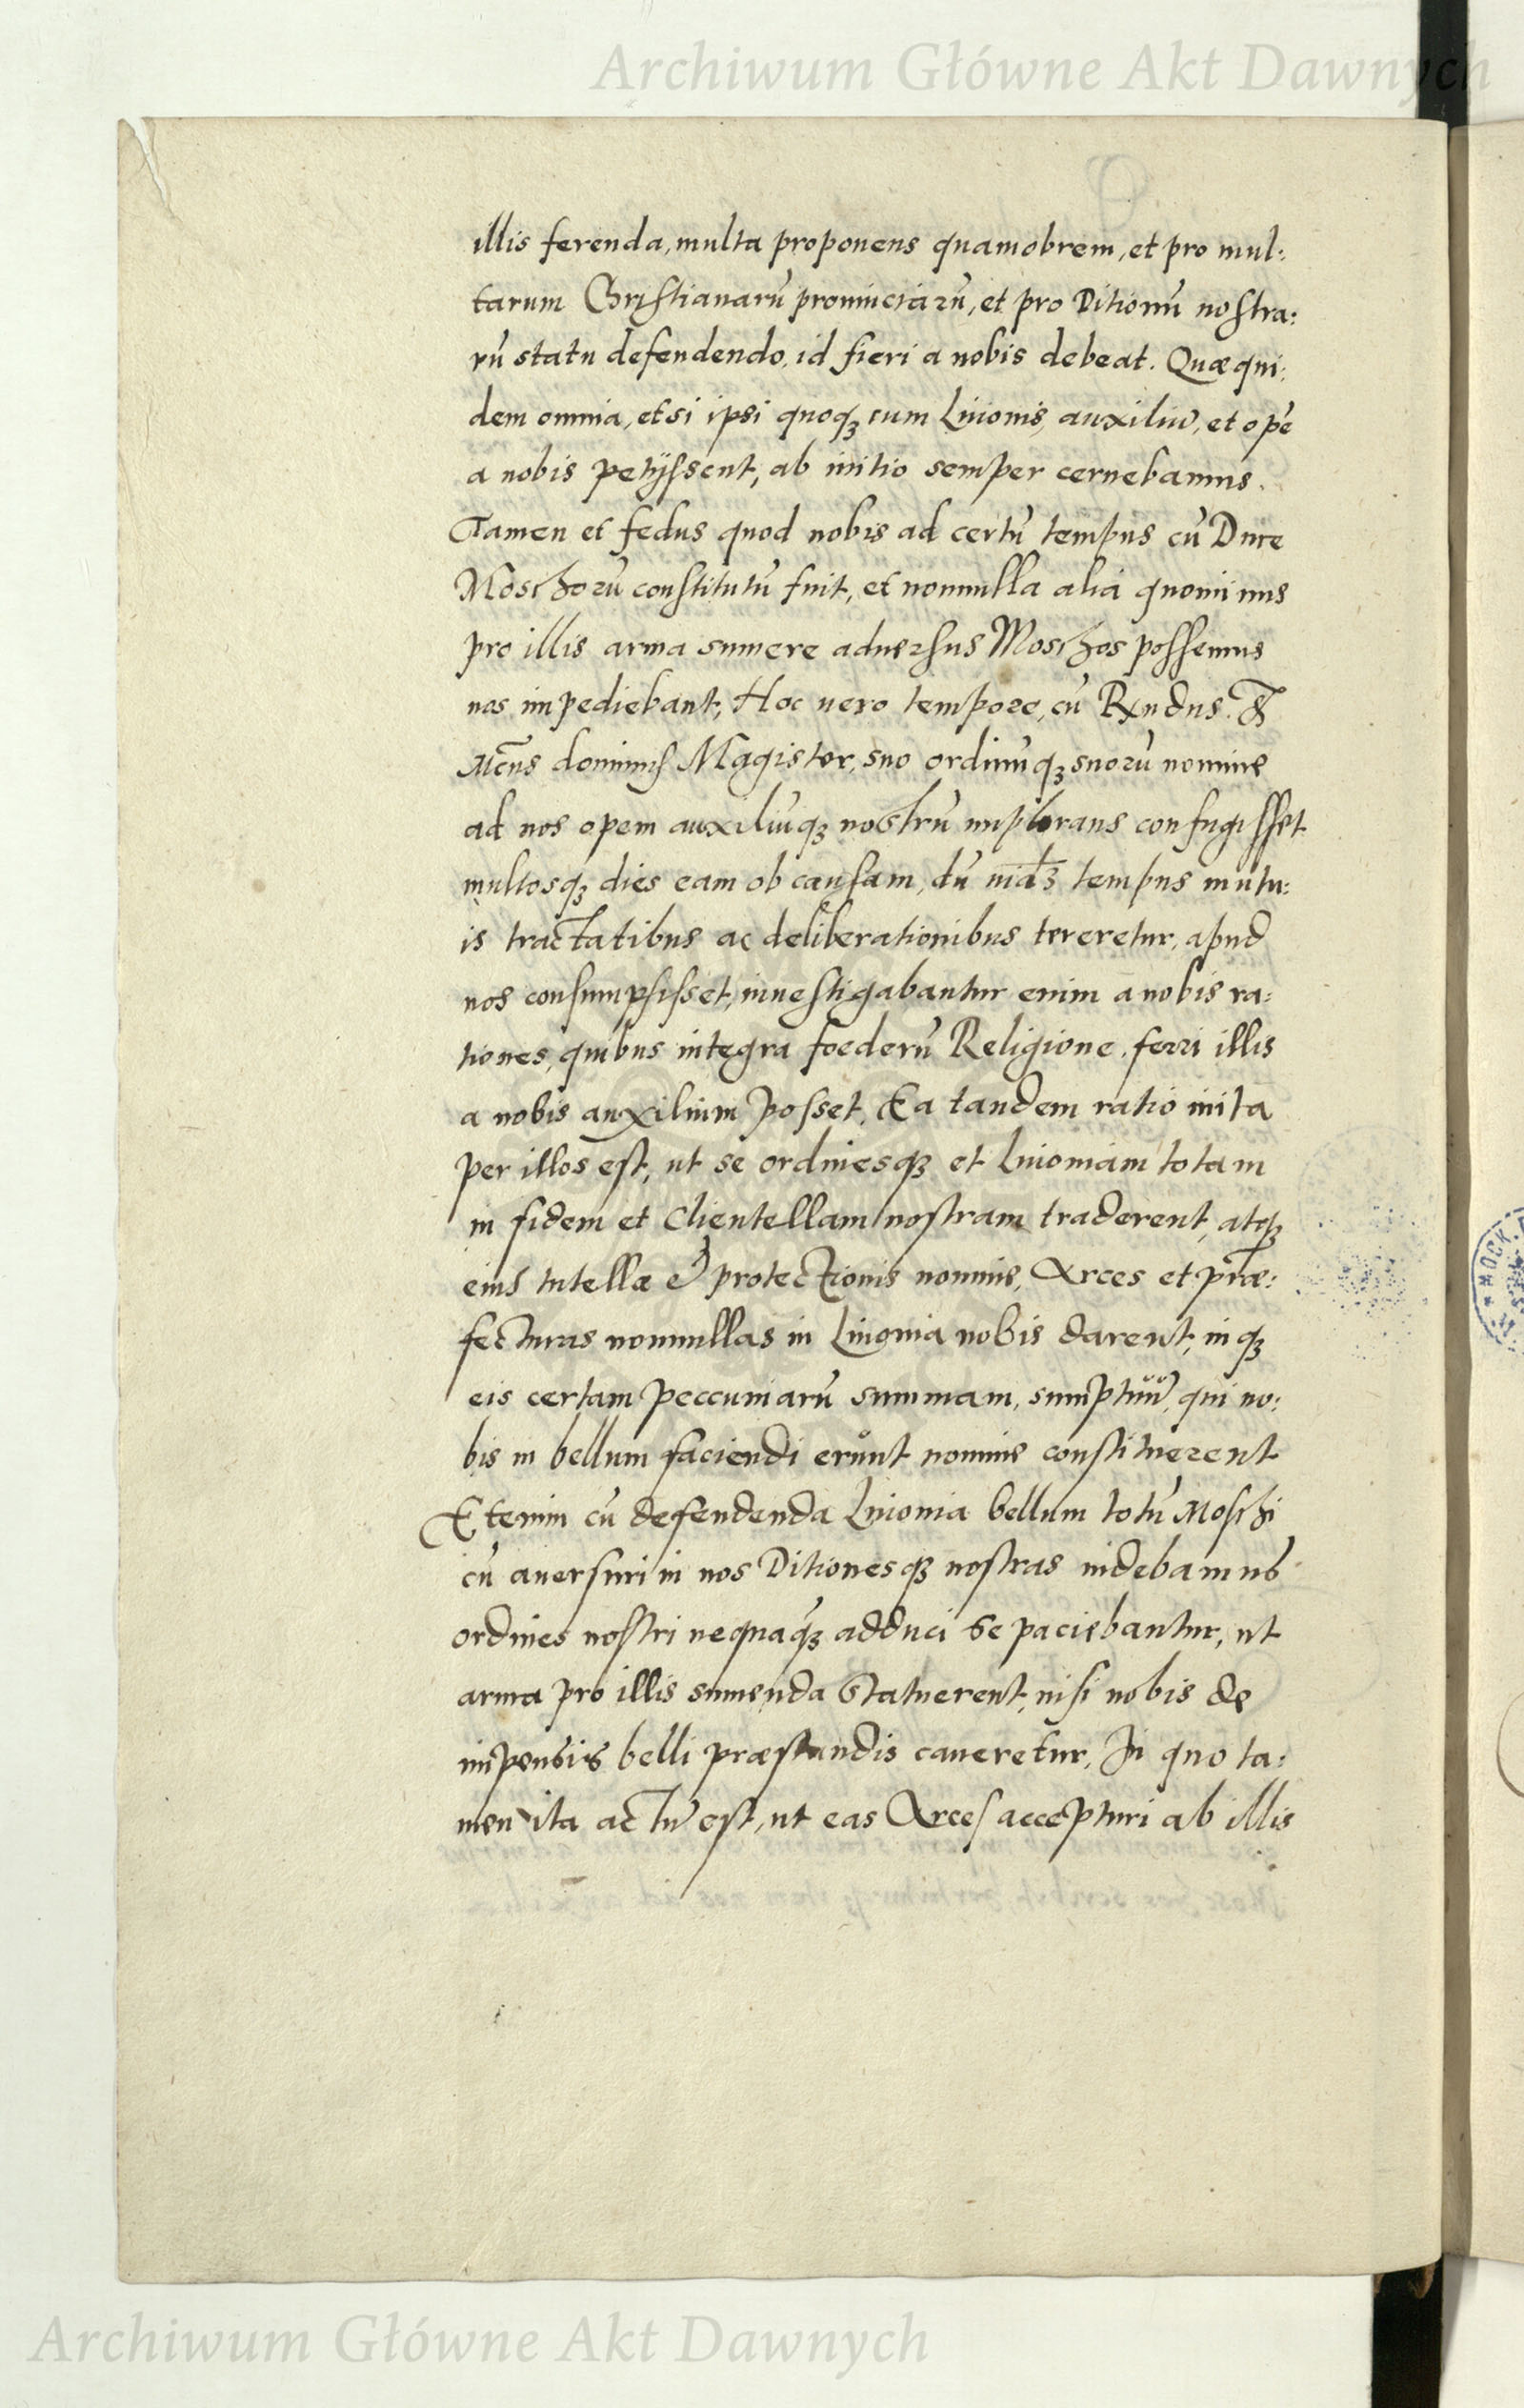 Archiwum Główne Akt Dawnych
illis ferenda, multa proponens quamobrem, et pro mul:
tarum Christianarū prouinciarū, et pro Ditionū nostra:
rū statu defendendo, id fieri a nobis debeat. Quæ qui:
dem omnia, etsi ipsi quoqꝫ cum Liuonis, auxiliū, et opē
a nobis petijssent, ab initio semper cernebamus.
Tamen et fedus quod nobis ad certū tempus cū Duce
Moschorū constitutū fuit, et nonnulla alia quominus
pro illis arma sumere aduersus Moschos possemus
nos impediebant, Hoc uero tempore, cū Rxndus. &
Mcus dominus Magister, suo ordinūqꝫ suorū nomine
ad nos opem auxiliūqꝫ nostrū implorans confugisset
multosqꝫ dies eam ob causam, dū tempus mutu:
is tractatibus ac deliberationibus tereretur, apud
nos consumpsisset, inuestigabantur enim a nobis ra:
tiones, quibus integra foederū Religione, ferri illis
a nobis auxilium posset. Ea tandem ratio inita
per illos est, ut se ordinesqꝫ et Liuoniam totam
in fidem et Clientellam nostram traderent, atqꝫ
eius tutellæ & protectionis nomine, Arces et præ:
fecturas nonnullas in Liuonia nobis darent, in qꝫ
eis certam peccuniarū summam, sumptuū, qui no:
bis in bellum faciendi erunt nomine constituerent
Etenim cū defendenda Liuonia bellum totū Moschi
cū auersuri in nos Ditionesqꝫ nostras uidebamus
ordines nostri nequaqꝫ adduci se paciebantur, ut
arma pro illis sumenda statuerent, nisi nobis de
impensis belli præstandis caueretur. In quo ta:
men ita actū est, ut eas Arces accepturi ab illis
Archiwum Główne Akt Dawnych